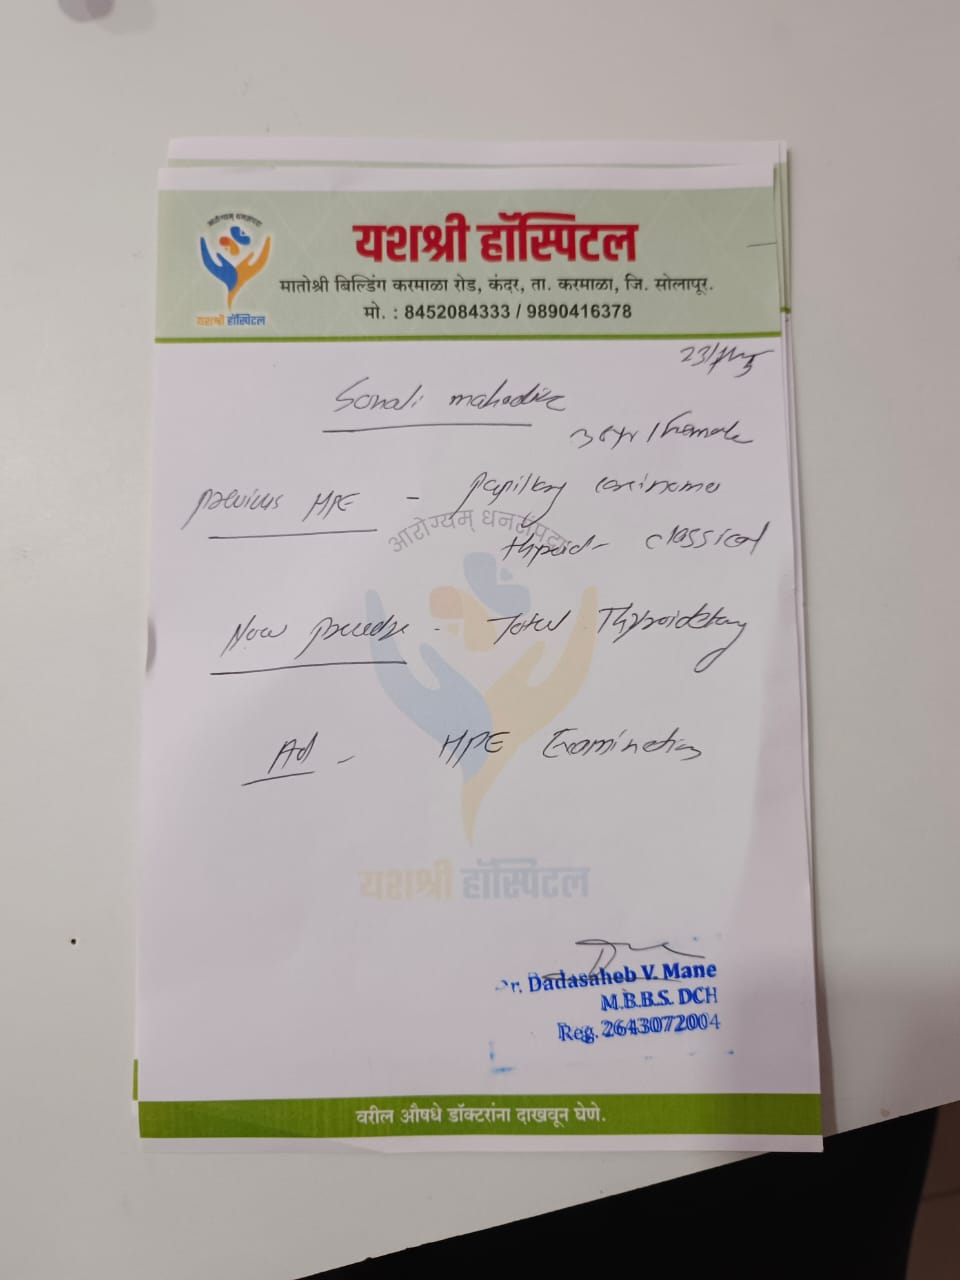 आरोग्यम् धनसंपदा
यशश्री हॉस्पिटल
यशश्री हॉस्पिटल
मातोश्री बिल्डिंग करमाळा रोड, कंदर, ता. करमाळा, जि. सोलापूर.
मो. : 8452084333 / 9890416378
Sonali
/ Female
previous HPE - papillary carcinoma
thyroid - classical
आरोग्यम् धनसंपदा
Now procedure - Total Thyroidectomy
Ad - HPE Examination
यशश्री हॉस्पिटल
Dr. Dadasaheb V. Mane
M.B.B.S. DCH
Reg. 2643072004
वरील औषधे डॉक्टरांना दाखवून घेणे.